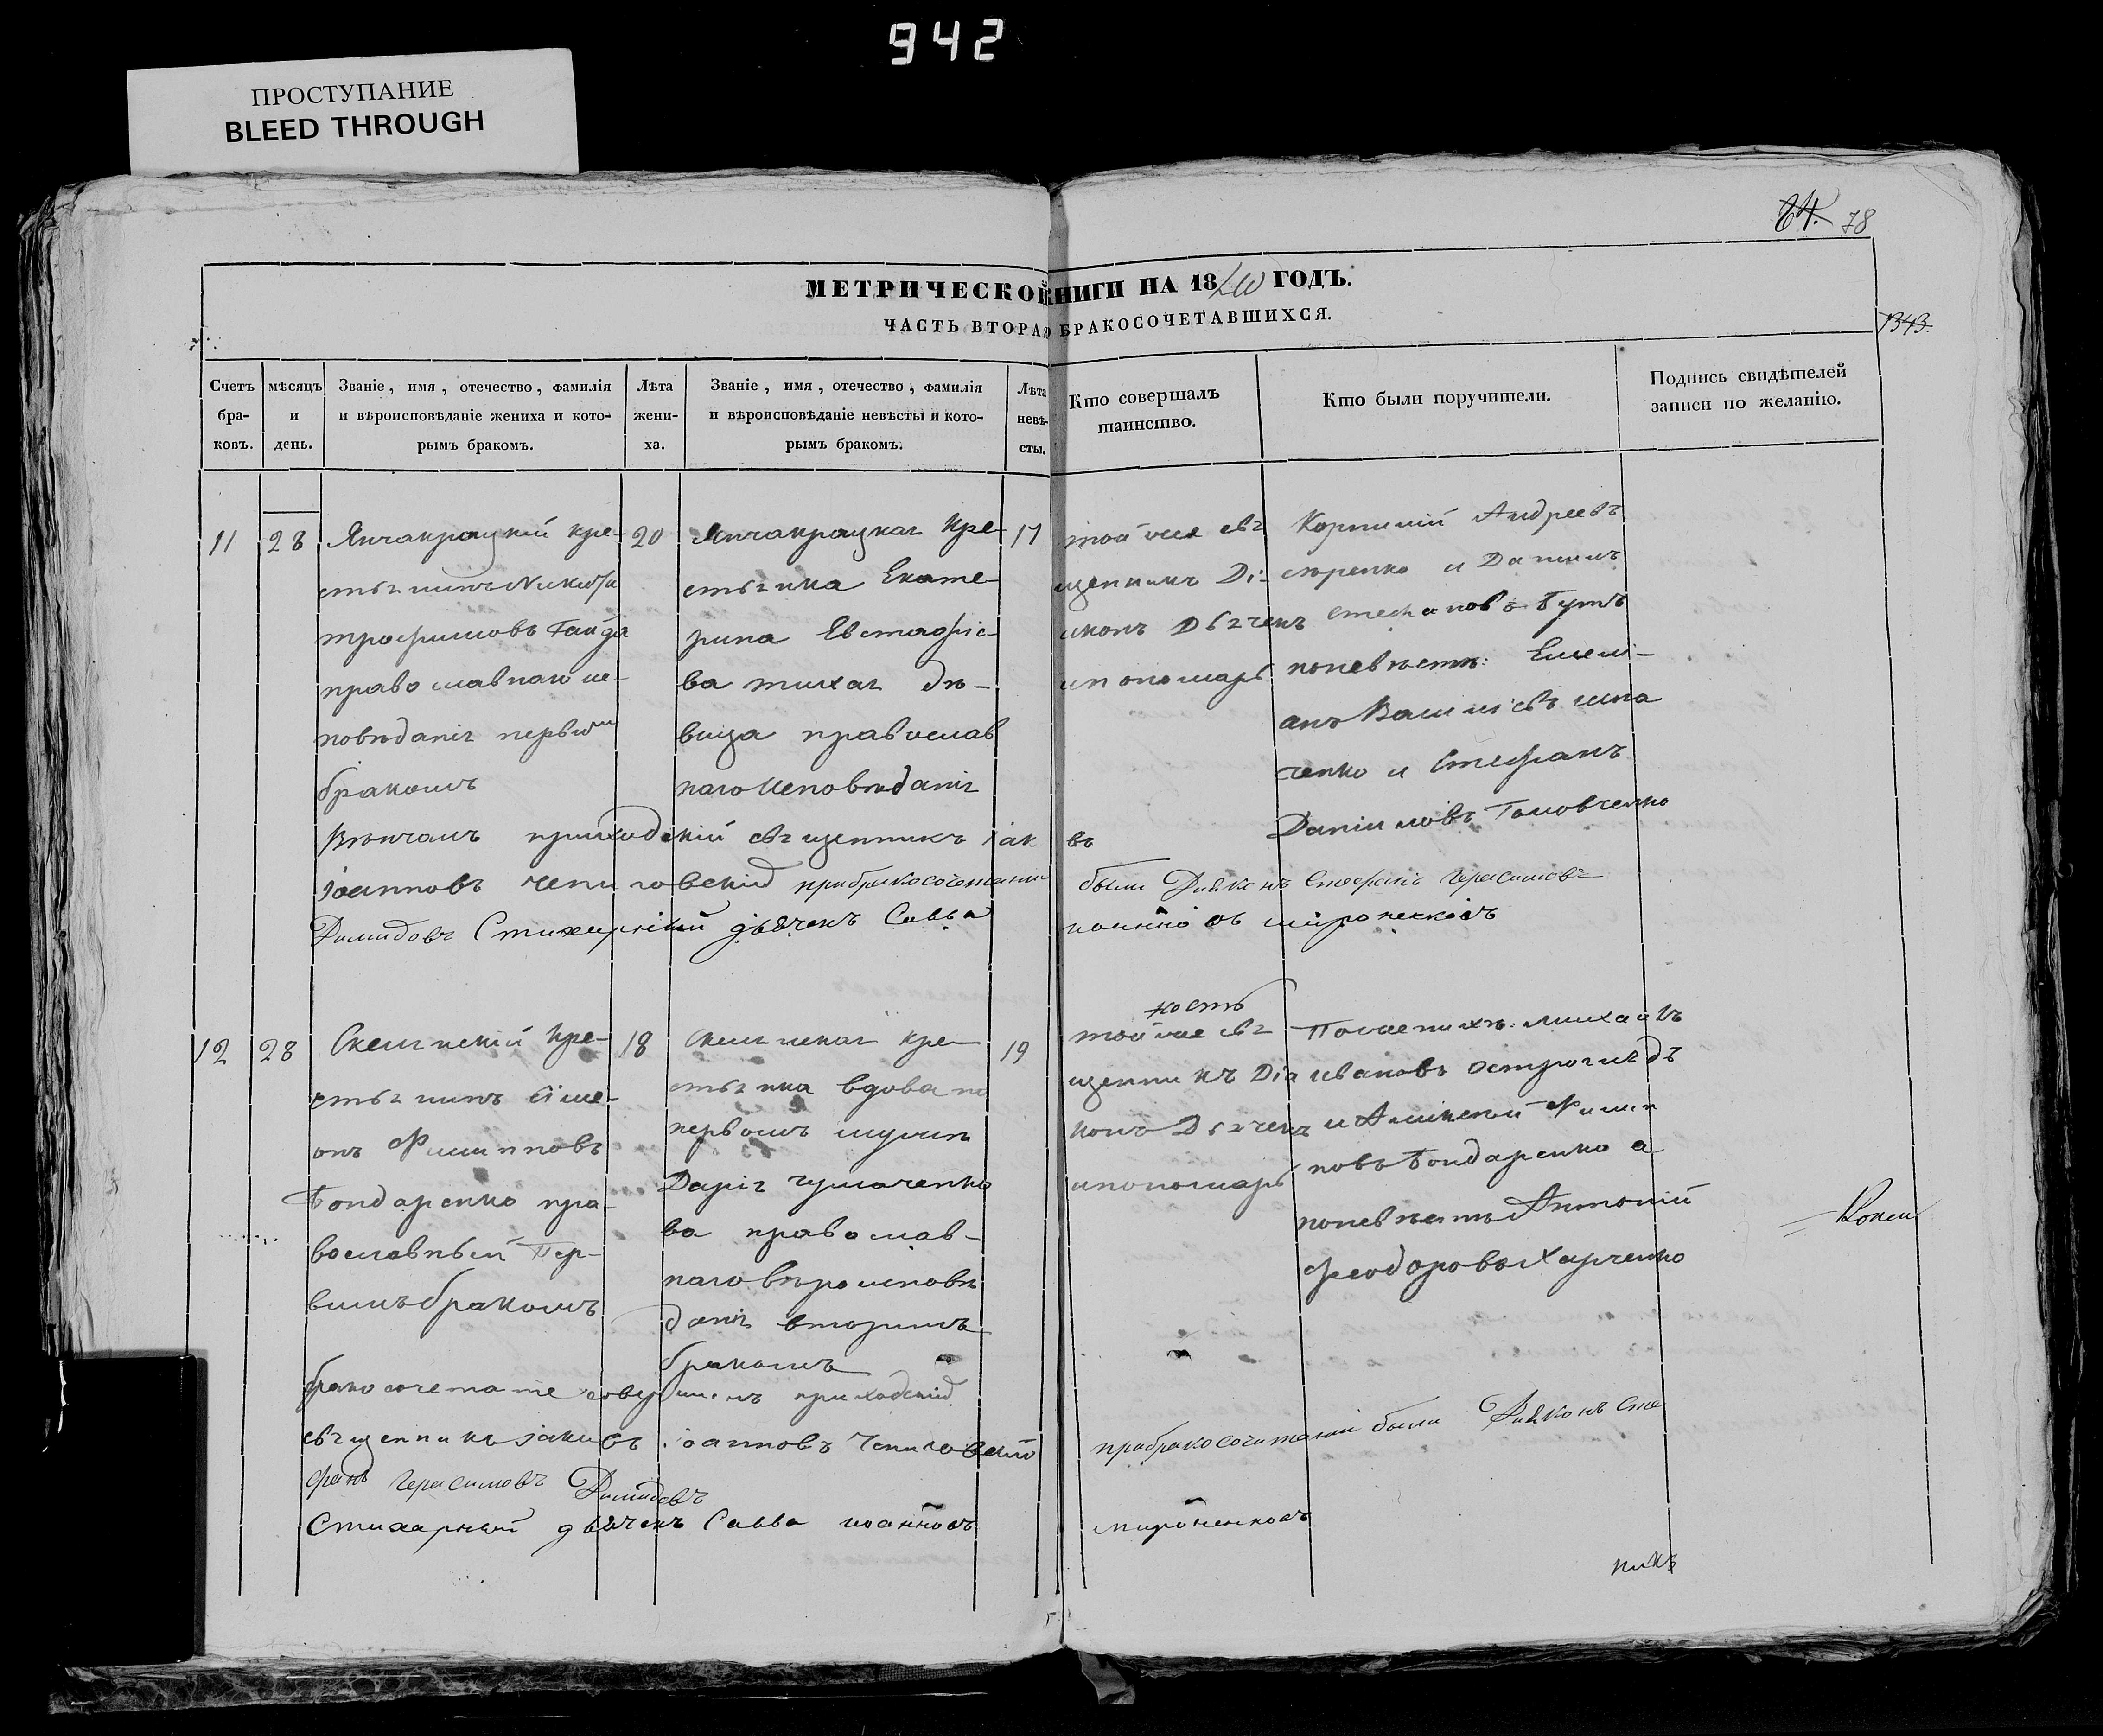 942
ПРОСТУПАНИЕ
BLEED THROUGH
78
МЕТРИЧЕСКОЙ КНИГИ НА 18 ГОДЪ.
ЧАСТЬ ВТОРАЯ БРАКОСОЧЕТАВШИХСЯ.
1343.
Счетъ бра- ковъ.
мѣсяцъ и день.
Званіе, имя, отечество, фамилія и вѣроисповѣданіе жениха и кото- рымъ бракомъ.
Лѣта жени- ха.
Званіе, имя, отечество, фамилія и вѣроисповѣданіе невѣсты и кото- рымъ бракомъ.
Лѣта невѣ- сты.
Кто совершалъ таинство.
Кто были поручители.
Подпись свидѣтелей записи по желанію.
11
28
Янчакрацкій кре-
стьянинъ Никита
трофимовъ Гайда
православнаго ис-
повѣданія первым
бракомъ
20
Янчакрацкая Кре-
стьянка Екате-
рина Евстафіе-
ва тихая дѣ-
вица православ
наго исповѣданія
17
той же свя
щенникъ Ді-
аконъ Дьячекъ
и пономарь
Корнилій Андреевъ
и Даніилъ
Стефановъ Бутъ
поневѣстѣ: Емелі-
анъ Василіевъ
ченко и Стефанъ
Даніиловъ Головченко
Вѣнчалъ приходскій священникъ Іак въ
Іоанновъ Чепиговскій при бракосочетании были Дияконъ Стефанъ Герасимовъ
Димидовъ Стихарный дьячекъ Савва иоанновъ мироненковъ
12
28
Скелянскій Кре-
стьянинъ Симе-
онъ Филипповъ
Бондаренко пра-
вославный Пер-
вимъ бракомъ
18
Скелянская кре-
стьянка вдова по
первомъ мужѣ
Дарія Чумаченко
ва православ-
наго вѣроисповѣ
данія вторимъ
бракомъ
19
ность
той же свя
щенникъ Діа
конъ Дьячекъ
и пономарь
По женихѣ: Михаилъ
Ивановъ Острогляdъ
и Алексей Филип
повъ Бондаренко а
поневѣстѣ Антоній
Феодоровъ Харченко
бракосочетаніе совершилъ приходскій
священникъ Іаковъ Іоанновъ Чепиговскій при бракосочитании были Дияконъ Сте
фанъ Герасимовъ Димидовъ
Стихарный дьячекъ Савва иоанновъ мироненковъ
никъ